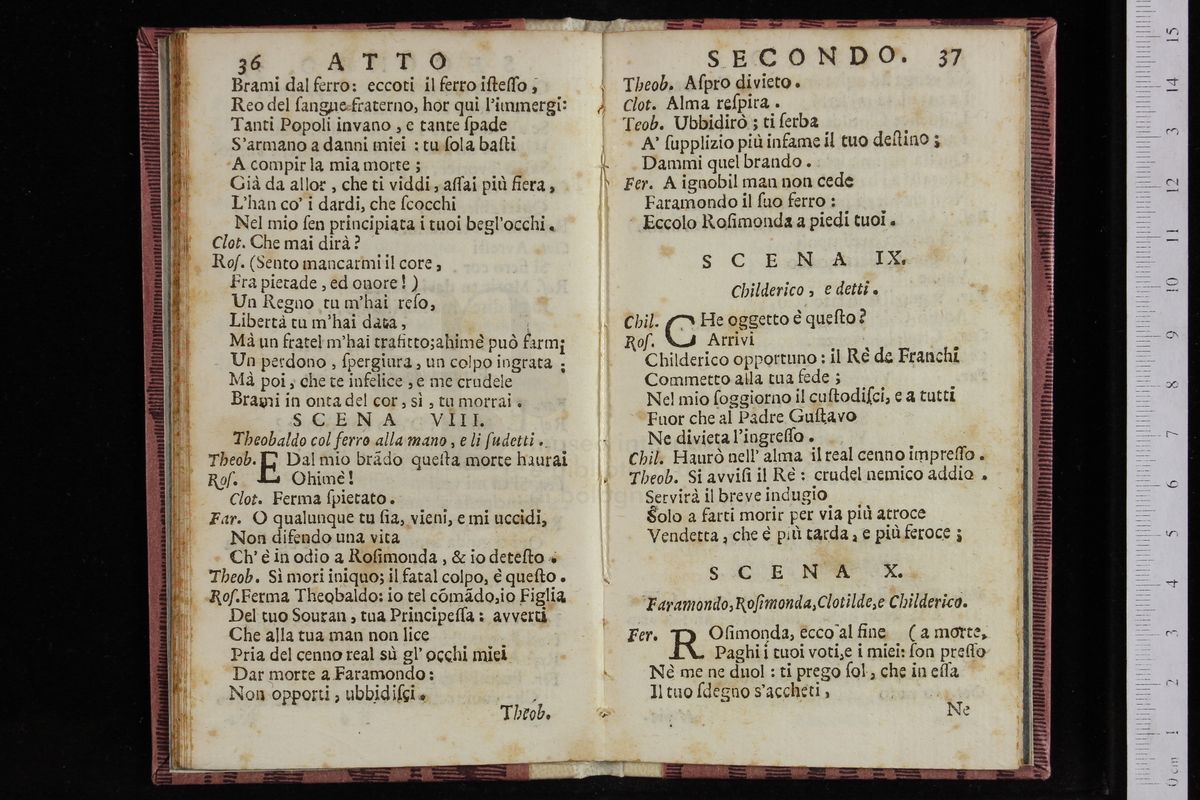 36 ATTO
Brami dal ferro: eccoti il ferro iſteſſo,
Reo del ſangue fraterno, hor qui l'immergi:
Tanti Popoli invano, e tante ſpade
S'armano a danni miei : tu ſola baſti
A compir la mia morte ;
Già da allor, che ti viddi, aſſai più fiera,
L'han co' i dardi, che ſcocchi
Nel mio ſen principiata i tuoi begl'occhi.
Clot. Che mai dirà ?
Roſ. (Sento mancarmi il core,
Fra pietade, ed onore! )
Un Regno tu m'hai reſo,
Libertà tu m'hai data,
Mà un fratel m'hai trafitto;ahimè può farmi
Un perdono, ſpergiura, un colpo ingrata ;
Mà poi, che te infelice, e me crudele
Brami in onta del cor, sì, tu morrai.
SCENA VIII.
Theobaldo col ferro alla mano, e li ſudetti.
Theob. E Dal mio brãdo queſta morte haurai
Roſ. Ohimè!
Clot. Ferma ſpietato.
Far. O qualunque tu ſia, vieni, e mi uccidi,
Non difendo una vita
Ch' è in odio a Roſimonda, & io deteſto.
Theob. Sì mori iniquo; il fatal colpo, è queſto.
Roſ. Ferma Theobaldo: io tel cõmãdo,io Figlia
Del tuo Souran, tua Principeſſa : avverti
Che alla tua man non lice
Pria del cenno real sù gl' occhi miei
Dar morte a Faramondo :
Non opporti, ubbidiſci.
Theob.
SECONDO. 37
Theob. Aſpro divieto.
Clot. Alma reſpira.
Teob. Ubbidirò ; ti ſerba
A' ſupplizio più infame il tuo deſtino ;
Dammi quel brando.
Fer. A ignobil man non cede
Faramondo il ſuo ferro :
Eccolo Roſimonda a piedi tuoi.
SCENA IX.
Childerico, e detti.
Chil. CHe oggetto è queſto ?
Roſ. Arrivi
Childerico opportuno : il Rè de Franchi
Commetto alla tua fede ;
Nel mio ſoggiorno il cuſtodiſci, e a tutti
Fuor che al Padre Guſtavo
Ne divieta l'ingreſſo.
Chil. Haurò nell' alma il real cenno impreſſo.
Theob. Si avviſi il Rè : crudel nemico addio.
Servirà il breve indugio
Solo a farti morir per via più atroce
Vendetta, che è più tarda, e più feroce ;
SCENA X.
Faramondo,Roſimonda,Clotilde,e Childerico.
Fer. ROſimonda, ecco al fine ( a morte,
Paghi i tuoi voti,e i miei: ſon preſſo
Nè me ne duol : ti prego ſol, che in eſſa
Il tuo ſdegno s'accheti,
Ne
15
14
13
12
11
10
9
8
7
6
5
4
3
2
1
0 cm